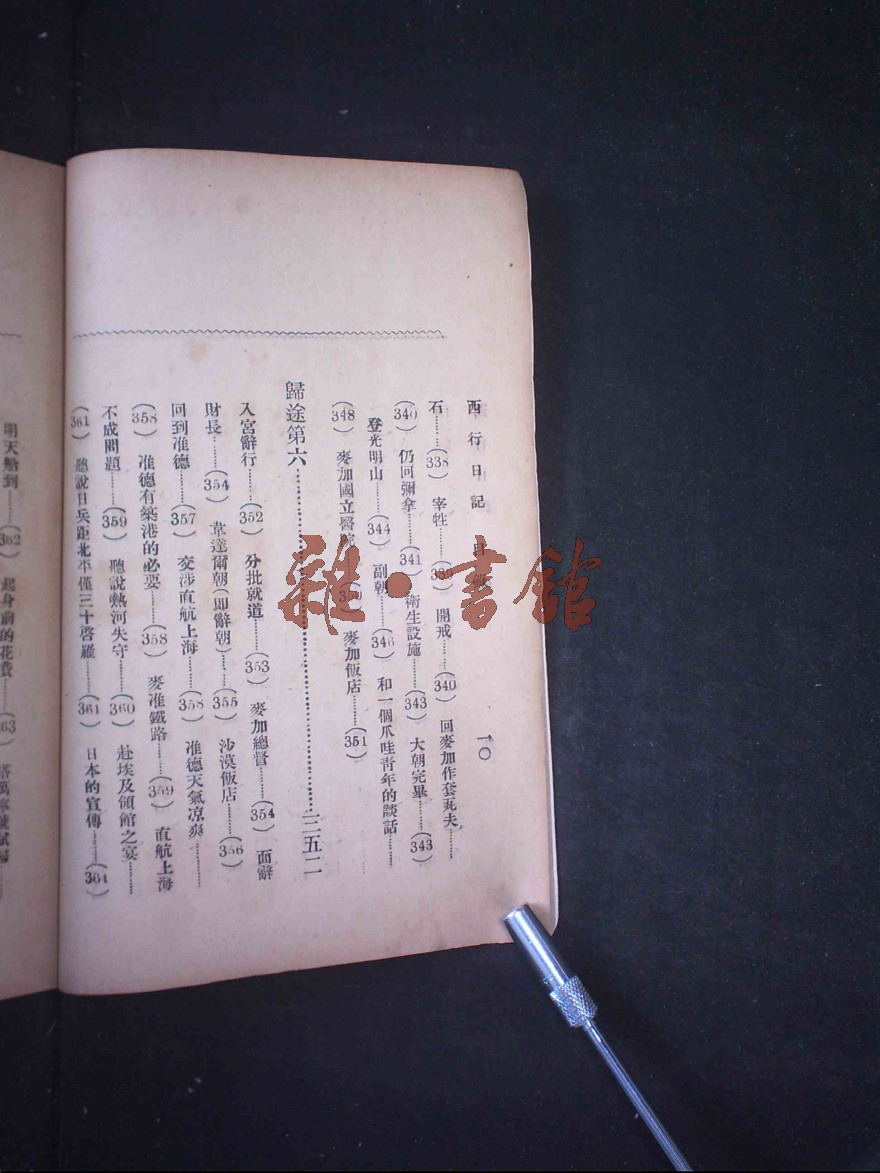 西行日記 目 一〇
石……(338) 宰牲……(339) 開戒……(340) 回麥加作套瓦夫……
(340) 仍回彌拿……(341) 衛生設施……(343) 大朝完畢……(343)
登光明山……(344) 副朝……(346) 和一個爪哇青年的談話……
(348) 麥加國立醫院 麥加飯店……(351)
歸途第六……三五二
入宮辭行……(352) 分批就道……(353) 麥加總督……(354) 面辭
財長……(354) 韋達爾朝(即辭朝)……(355) 沙漠飯店……(356)
回到准德……(357) 交涉直航上海……(358) 准德天氣凉爽……
(358) 准德有築港的必要……(358) 麥准鐵路……(359) 直航上海
不成問題……(359) 聽說熱河失守……(360) 赴埃及領館之宴……
(361) 聽說日兵距北平僅三十啓羅……(361) 日本的宣傳……(361)
明天船到……(362) 起身前的花費……
雜·書館